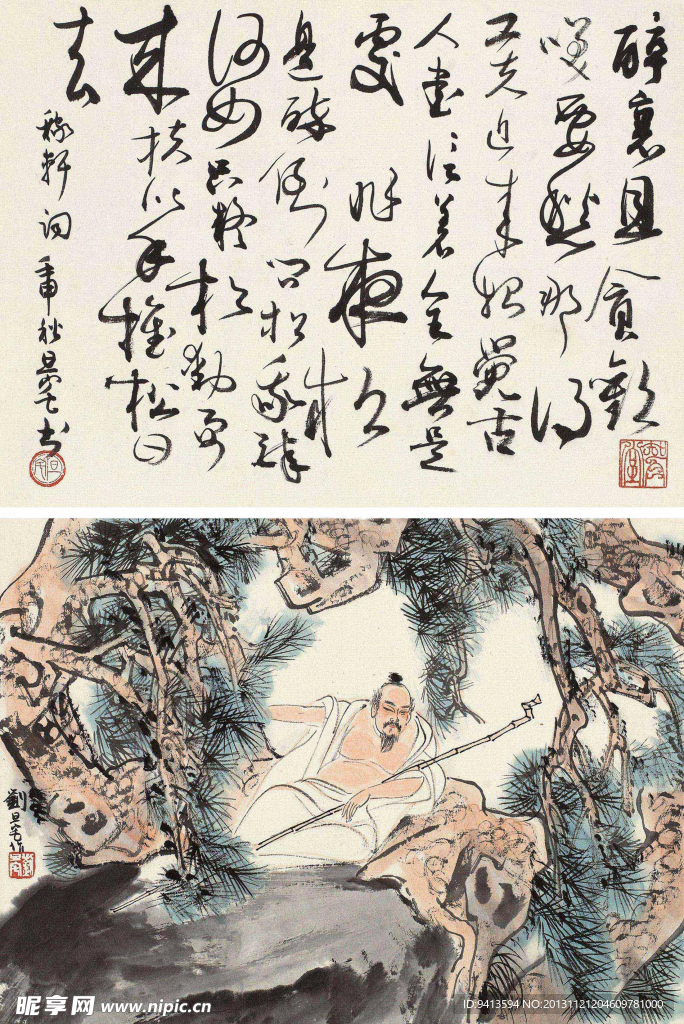 醉裏且貪歡
笑要愁那得
工夫近来始覺古
人書信着全無是
處昨夜松
邊醉倒問松我醉
何如只疑松動要
来扶以手推松曰
去
稼軒詞 壬申秋旦宅书
劉旦宅作
昵享网 www.nipic.cn
ID:9413594 NO:20131121204609781000